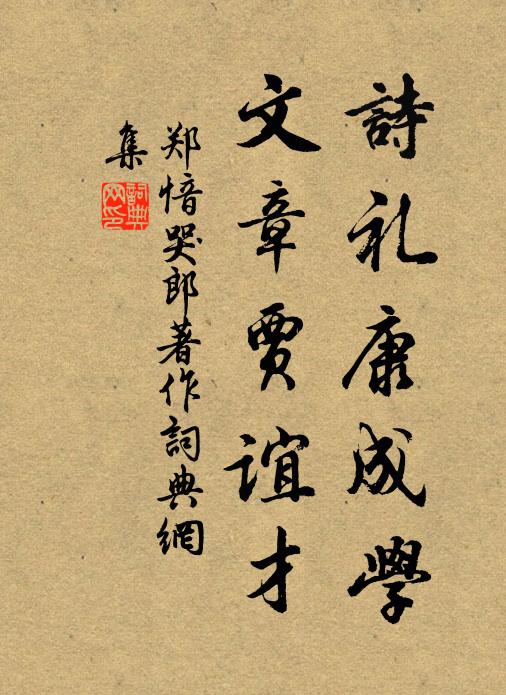 詩礼康成學
文章賈誼才
郑愔哭郎著作詞典網
集
詞典網印